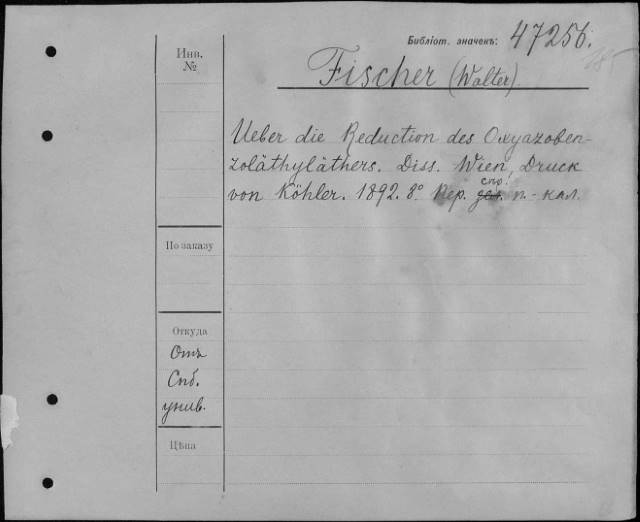 Библіот. значекъ: 47256.
Инв.
№
Fischer (Walter).
Ueber die Reduction des Oxyazoben-
zoläthyläthers. Diss. Wien, Druck
спо.
von Köhler. 1892. 8° Пер. п.-кал.
По заказу
Откуда
Отъ
Спб.
унив.
Цѣна